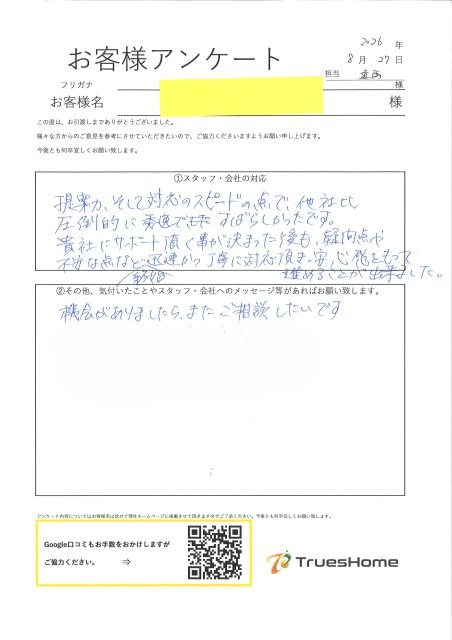 お客様アンケート
2026 年
8 月 27 日
担当
フリガナ 様
お客様名 様
この度は、お引渡しまでありがとうございました。
様々な方からのご意見を参考にさせていただきたいので、ご協力くださいますようお願い申し上げます。
今後とも何卒宜しくお願い致します。
①スタッフ・会社の対応
提案力、そして対応のスピードの点で、他社比
圧倒的に すばらしかったです。
貴社にサポート頂く事が決まった後も、疑問点や
不安な点など迅速かつ丁寧に対応頂き、安心感をもって
進めることが出来ました。
②その他、気付いたことやスタッフ・会社へのメッセージ等があればお願い致します。
機会がありましたら、またご相談したいです
アンケート内容についてはお客様名は伏せて弊社ホームページに掲載させて頂きますのでご了承ください。今後とも何卒宜しくお願い致します。
Google口コミもお手数をおかけしますが
ご協力ください。 ⇒
TruesHome